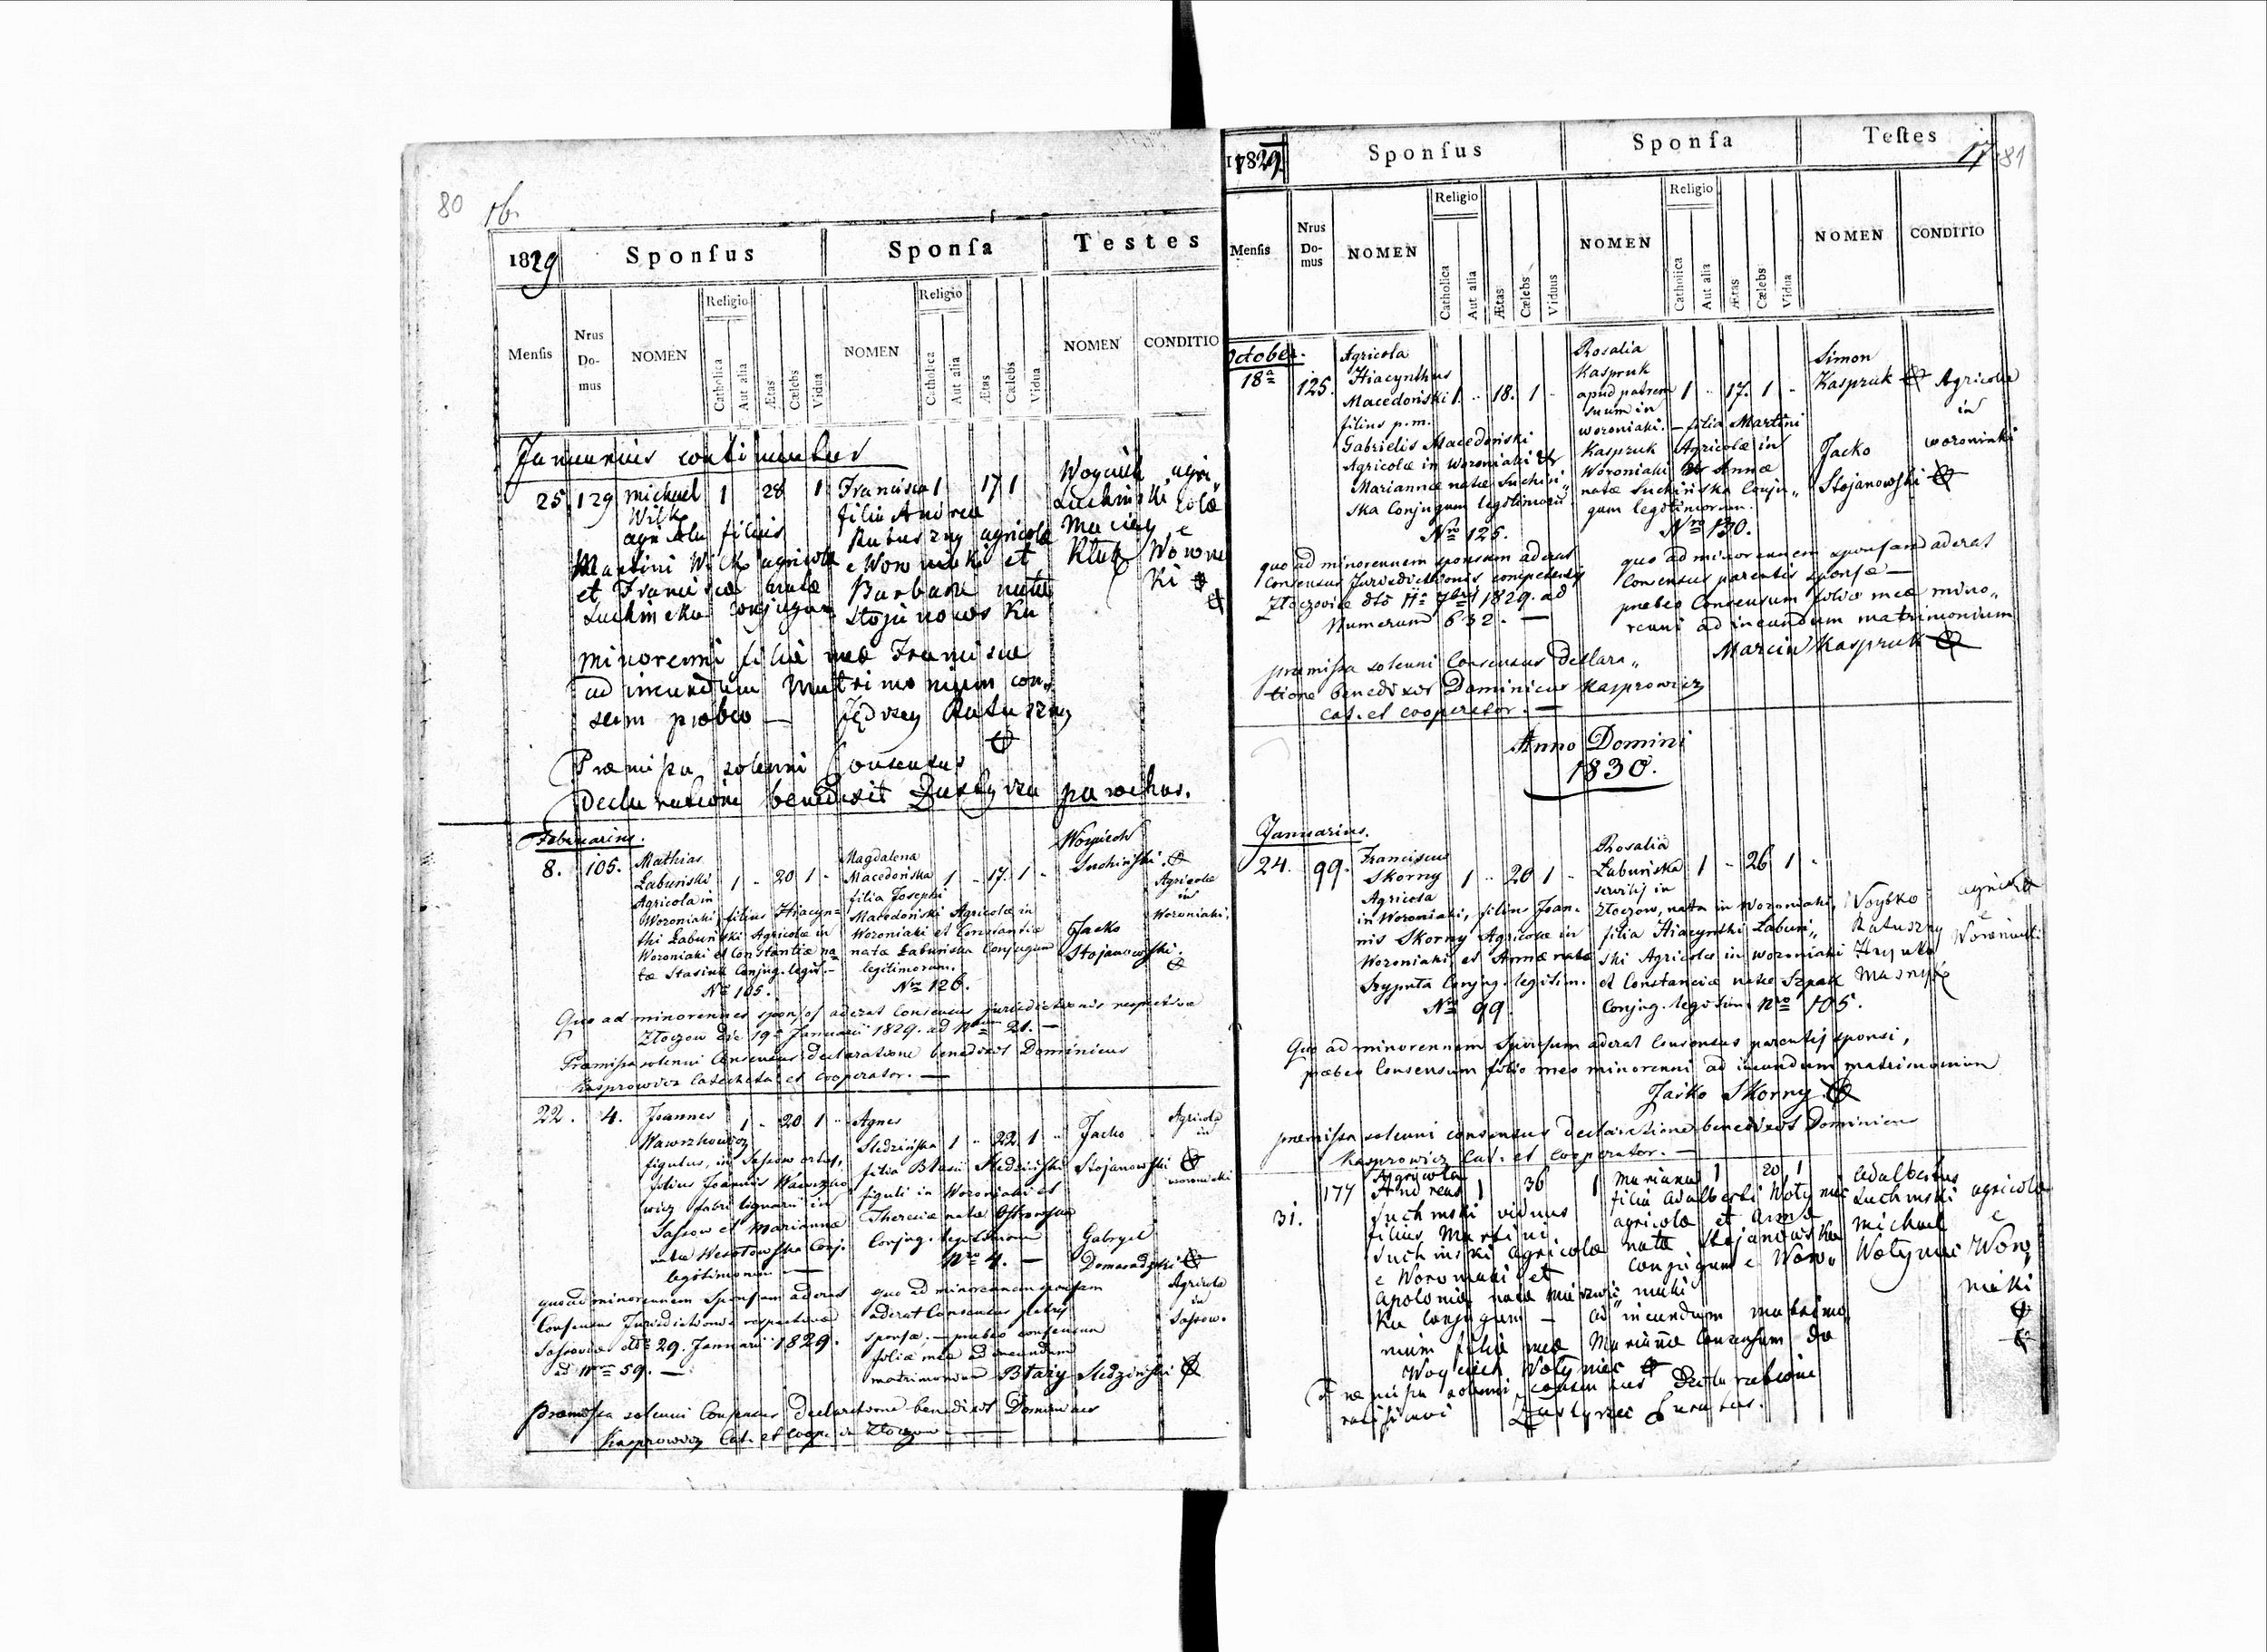 80 16.
1829 Sponſus Sponſa Testes
Menſis Nrus Do- mus NOMEN Religio Catholica Aut alia Ætas Cælebs Vidua NOMEN Religio Catholica Aut alia Ætas Cælebs Vidua NOMEN CONDITIO
Januarius continuatus
25 129 Michael 1 28 1 Francisca 1 17 1 Woyciech agri„
Wilk filia Andrea Suchinski colæ
agricola filius Ratuszny agricolæ Maciey e
Martini Wilk agricolæ e Woroniaki et Kluk Woronia
et Franciscæ natæ Barbaræ natæ ki
Suchinska conjugum Stojanowska
minorenni filiæ meæ Franciscæ
ad ineundum Matrimonium con„
sensum præbeo — Jędrzey Ratuszny
Præmissa solenni Consensus
declaratione benedixit parochus.
Februarius.
8. 105. Mathias Magdalena Woyciech
Łabuński 1 - 20 1 - Macedońska 1 - 17. 1 - Suchiński
Agricola in filia Josephi Agricolæ
Woroniaki, filius Hiacyn= Macedoński Agricolæ in in
thi Łabuński Agricolæ in Woroniaki et Constantiæ Woroniaki.
Woroniaki et Constantiæ na natæ Łabuńska Conjugum Jacko
tæ Stasiuk Conjug. legit.— legitimorum. Stojanowski.
Nro 105. Nro 126.
Quo ad minorennes sponsos aderat Consensus jurisdictionis respectivæ
Złoczow die 19a Januarii 1829. ad Nrum 21. —
Præmissa solenni Consensus declaratione benedixit Dominicus
Kasprowicz Catecheta et cooperator. —
22. 4. Joannes 1 - 20 1 - Agnes Jacko Agricola
Wawrzkowicz Sledzińska 1 - 22. 1 - Stojanowski in
figulus, in Sassow ortus, filia Blasii Sledziński woroniaki
filius Joannis Wawrzko figuli in Woroniaki et
wicz fabri lignarii in Theresiæ natæ Ostrowska
Sassow et Mariannæ Conjug. legitimorum Gabryel
natæ Wesołowska Conj. Nro 4. — Domaradzki
legitimorum — Agricola
in
Sassow.
quoad minorennem Sponsum aderat
Consensus Jurisdictionis respectivæ
Sassoviæ dto 29. Januarii 1829.
ad Nrum 59. —
quo ad minorennem sponsam
aderat Consensus patris
sponsæ. — præbeo consensum
filiæ meæ ad ineundum
matrimonium Błażey Sledziński
præmissa solenni Consensus declaratione benedixit Dominicus
Kasprowicz Cat. et coop. in Złoczow —
1829. Sponſus Sponſa Teſtes 17 81
Menſis Nrus Do- mus NOMEN Religio Catholica Aut alia Ætas Cælebs Viduus NOMEN Religio Catholica Aut alia Ætas Cælebs Vidua NOMEN CONDITIO
October.
18a 125. Agricola Rosalia Simon
Hiacynthus Kaspruk Kaspruk Agricolæ
Macedoński 1 - 18. 1 - apud patrem 1 - 17. 1 - in
filius p.m. suum in woroniaki
Gabrielis Macedoński woroniaki. — filia Martini Jacko
Agricolæ in Woroniaki & Kaspruk Agricolæ in Stojanowski
Mariannæ natæ Suchiń„ Woroniaki & Annæ
ska Conjugum legitimorum natæ Suchińska Conju„
Nro 125. gum legitimorum.
Nro 130.
quo ad minorennem sponsum aderat
Consensus Jurisdictionis competentis
Złoczoviæ dto 11a 7bris 1829. ad
Numerum 632. —
quo ad minorennem sponsam aderat
Consensus parentis sponsæ —
præbeo Consensum filiæ meæ mino„
renni ad ineundum matrimonium
Marcin Kaspruk
præmissa solenni Consensus declara„
tione benedixit Dominicus Kasprowicz
cat. et cooperator. —
Anno Domini
1830.
Januarius.
24. 99. Franciscus Rosalia
Skorny 1 - 20 1 - Łabuńska 1 - 26 1 -
Agricola servilis in
in Woroniaki, filius Joan- Złoczow, nata in Woroniaki, Woytko agricolæ
nis Skorny Agricolæ in filia Hiacynthi Łabuń„ Ratuszny e
Woroniaki et Annæ natæ ski Agricolæ in woroniaki Hrynko Woroniaki
Szypuła Conjug. legitim. et Constanciæ natæ Szpak
Nro 99. Conjug. legitim. Nro 105.
Quo ad minorennem Sponsum aderat Consensus parentis sponsi,
præbeo Consensum filio meo minorenni ad ineundum matrimonium
Jaśko Skorny
præmissa solenni consensus declaratione benedixit Dominicus
Kasprowicz Cat. et Cooperator. —
31. 177 Agricola Marianna 1 20 1 Adalbertus
Andreas 1 36 1 filia Adalberti Wołyniec Suchinski agricolæ
Suchinski viduus agricolæ et Annæ Michael e
filius Martini natæ Stojanowska Wołyniec Woro„
Suchinski agricolæ conjugum e Woro„ niaki
e Woroniaki et niaki
Apoloniæ natæ
ka Conjugum — ad ineundum matrimo„
nium filiæ meæ Mariannæ Consensum do
Woyciech Wołyniec
Præmissa solenni consensus declaratione
Curatus.